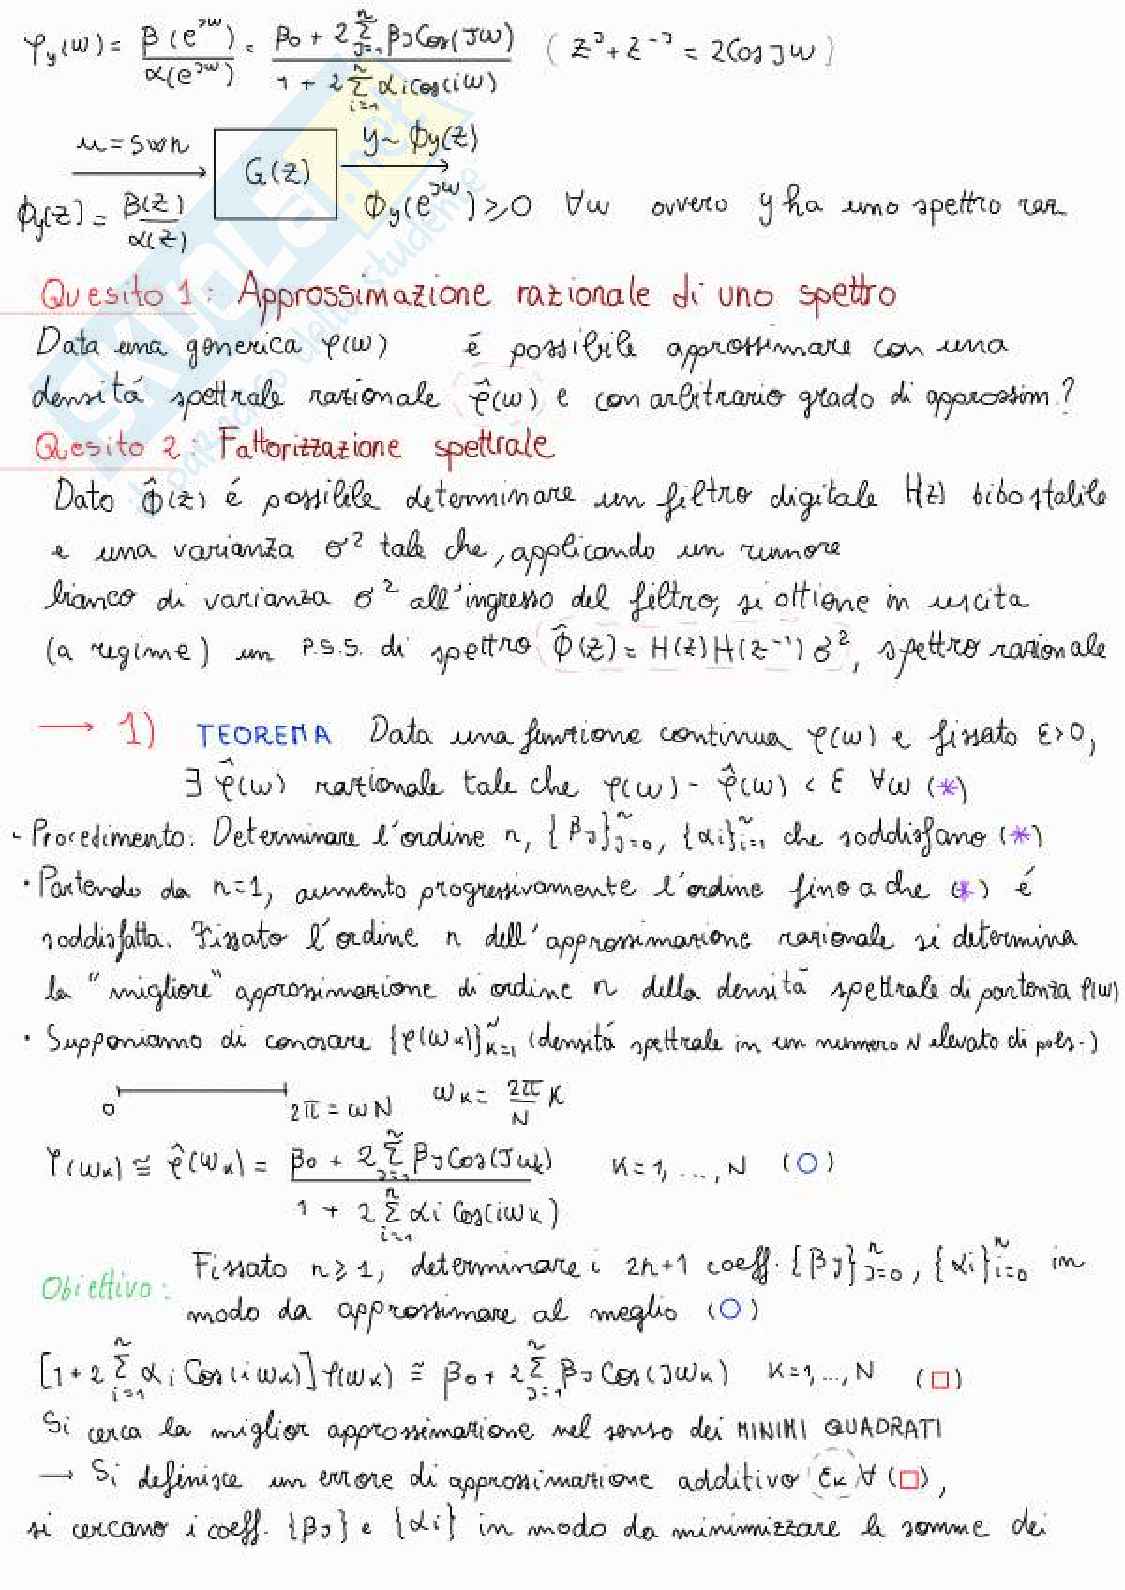 φy(ω) = β(e^jω) / α(e^jω) = β0 + 2 Σ_{j=1}^{n} βj Cos(jω) / 1 + 2 Σ_{i=1}^{n} αi cos(iω) ( z^j + z^-j = 2 Cos jω )
u = swn G(z) y ~ ϕy(z)
ϕy(z) = β(z) / α(z) ϕy(e^jω) ≥ 0 ∀ω ovvero y ha uno spettro raz
Quesito 1: Approssimazione razionale di uno spettro
Data una generica φ(ω) é possibile approssimare con una
densitá spettrale razionale φ̂(ω) e con arbitrario grado di approssim?
Qesito 2: Fattorizzazione spettrale
Dato ϕ̂(z) é possibile determinare un filtro digitale H(z) bibo stabile
e una varianza σ² tale che, applicando un rumore
bianco di varianza σ² all'ingresso del filtro, si ottiene in uscita
(a regime) un P.S.S. di spettro ϕ̂(z) = H(z)H(z⁻¹) σ², spettro razionale
→ 1) TEOREMA Data una funzione continua φ(ω) e fissato ε>0,
∃ φ̂(ω) razionale tale che φ(ω) - φ̂(ω) < ε ∀ω (*)
- Procedimento: Determinare l'ordine n, {βj}_{j=0}^{n}, {αi}_{i=1}^{n} che soddisfano (*)
• Partendo da n=1, aumento progressivamente l'ordine fino a che (*) é
soddisfatta. Fissato l'ordine n dell'approssimazione razionale si determina
la "migliore" approssimazione di ordine n della densitá spettrale di partenza φ(ω)
• Supponiamo di conoscare {φ(ωk)}_{k=1}^{N} (densitá spettrale in un numero N elevato di puls.)
0 2π = ωN ωk = 2π/N K
φ(ωk) ≅ φ̂(ωk) = β0 + 2 Σ_{j=1}^{n} βj Cos(jωk) / 1 + 2 Σ_{i=1}^{n} αi Cos(iωk) K = 1, ..., N (○)
Obiettivo: Fissato n ≥ 1, determinare i 2n+1 coeff. {βj}_{j=0}^{n}, {αi}_{i=0}^{n} in
modo da approssimare al meglio (○)
[1 + 2 Σ_{i=1}^{n} αi Cos(iωk)] φ(ωk) ≅ β0 + 2 Σ_{j=1}^{n} βj Cos(jωk) K = 1, ..., N (□)
Si cerca la miglior approssimazione nel senso dei MINIMI QUADRATI
→ Si definisce un errore di approssimazione additivo εk ∀ (□),
si cercano i coeff. {βj} e {αi} in modo da minimizzare la somme dei